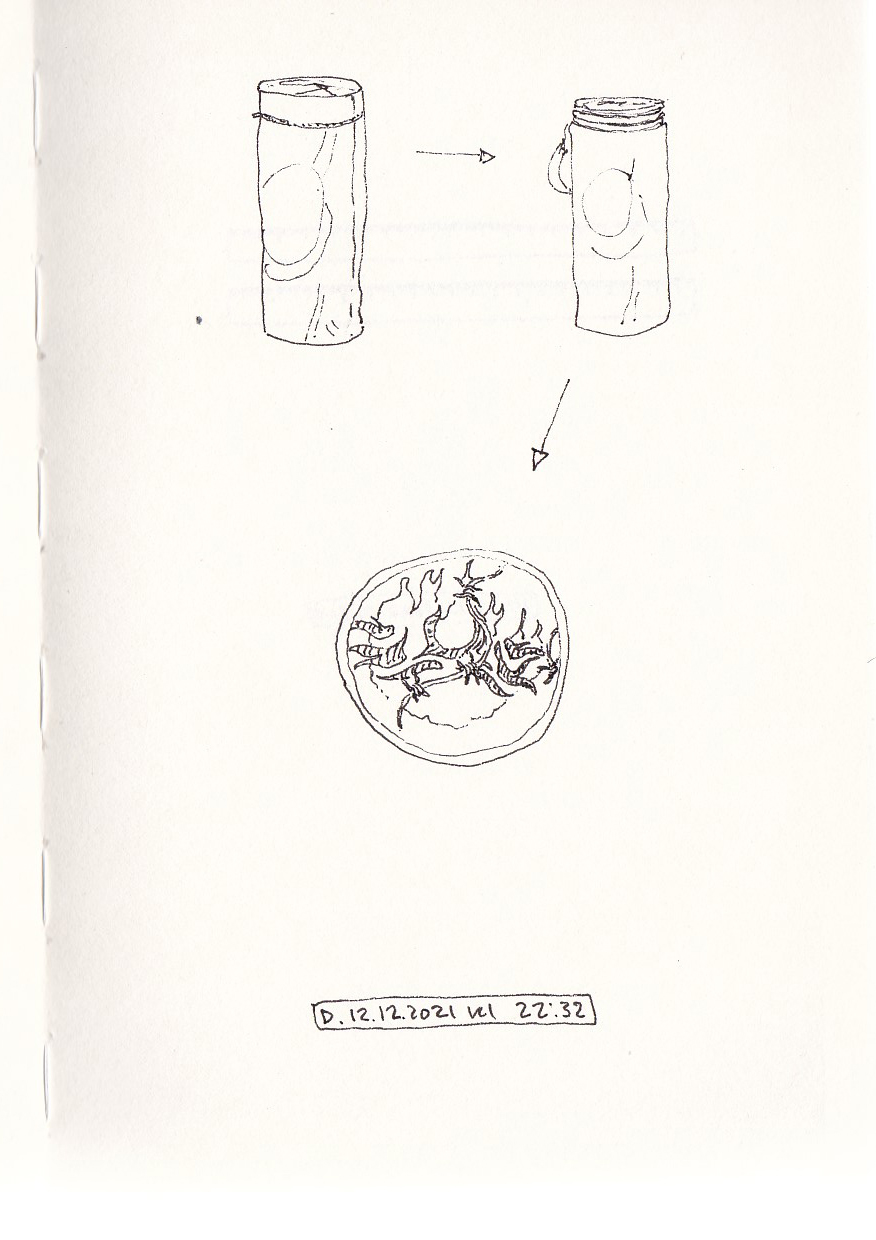 D. 12.12.2021 kl 22:32